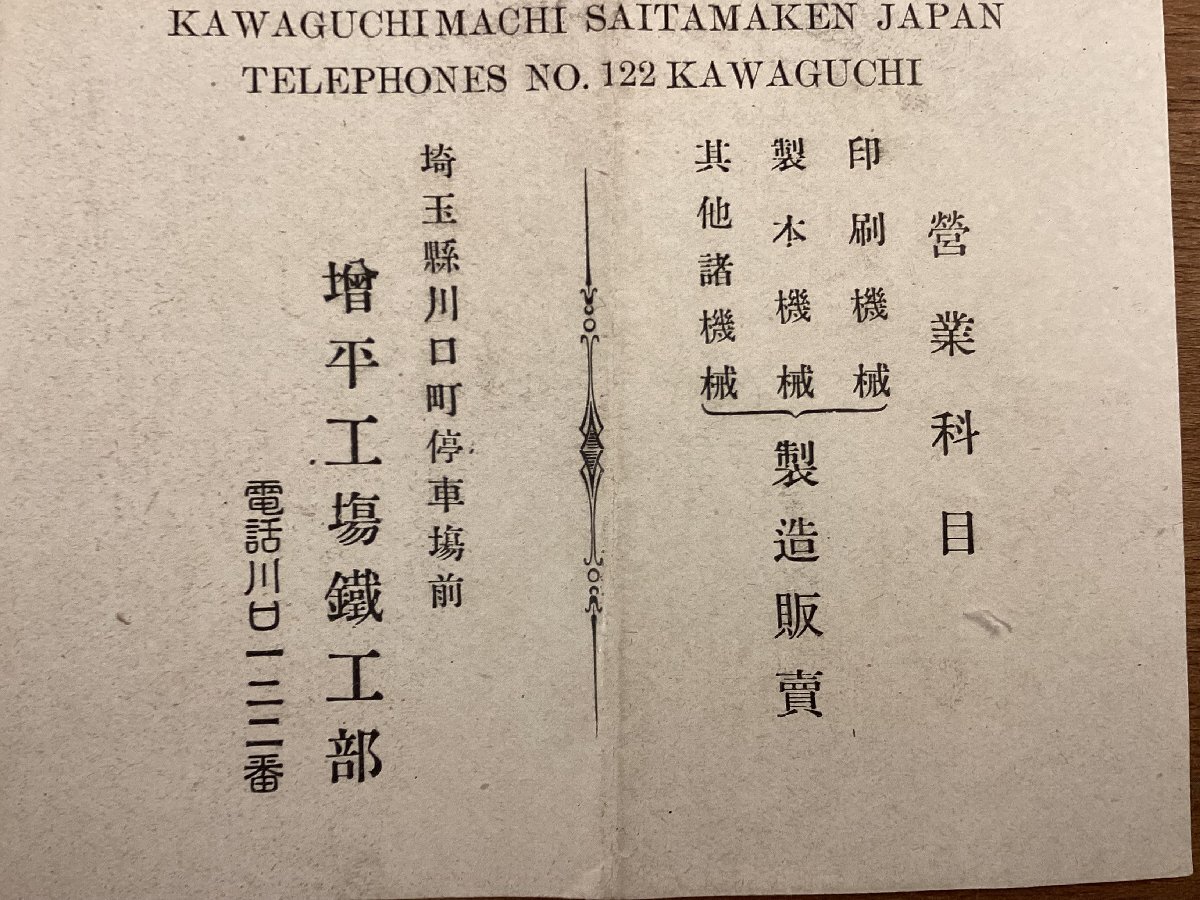 KAWAGUCHIMACHI SAITAMAKEN JAPAN
TELEPHONES NO. 122 KAWAGUCHI
營業科目
印刷機械
製本機械
其他諸機械
製造販賣
埼玉縣川口町停車塲前
增平工塲鐵工部
電話川口一二二番